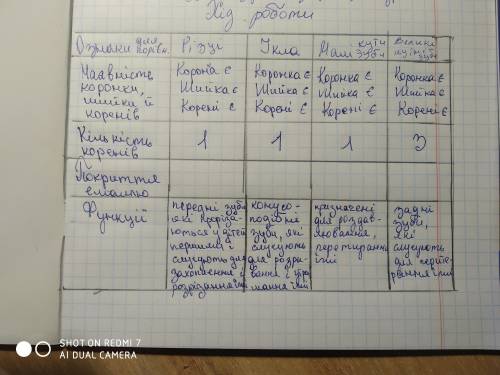 Хід роботи
Ознаки для порівн. Різці Ікла Малі кутні зуби Великі кутні зуби
Наявність Коронка є Коронка є Коронка є Коронка є
коронки, Шийка є Шийка є Шийка є Шийка є
шийки й Корені є Корені є Корені є Корені є
коренів
Кількість 1 1 1 3
коренів
Покриття
емаллю
Функції передні зуби конусо- призначені задні
які прорізa- подібні для роздав- зуби,
ються у дітей зуби, які лювання, які
першими і слугують перетирання слугують
слугують для для розри- їжі для
захоплення і вання і
розрізання їжі їжі їжі
SHOT ON REDMI 7
AI DUAL CAMERA